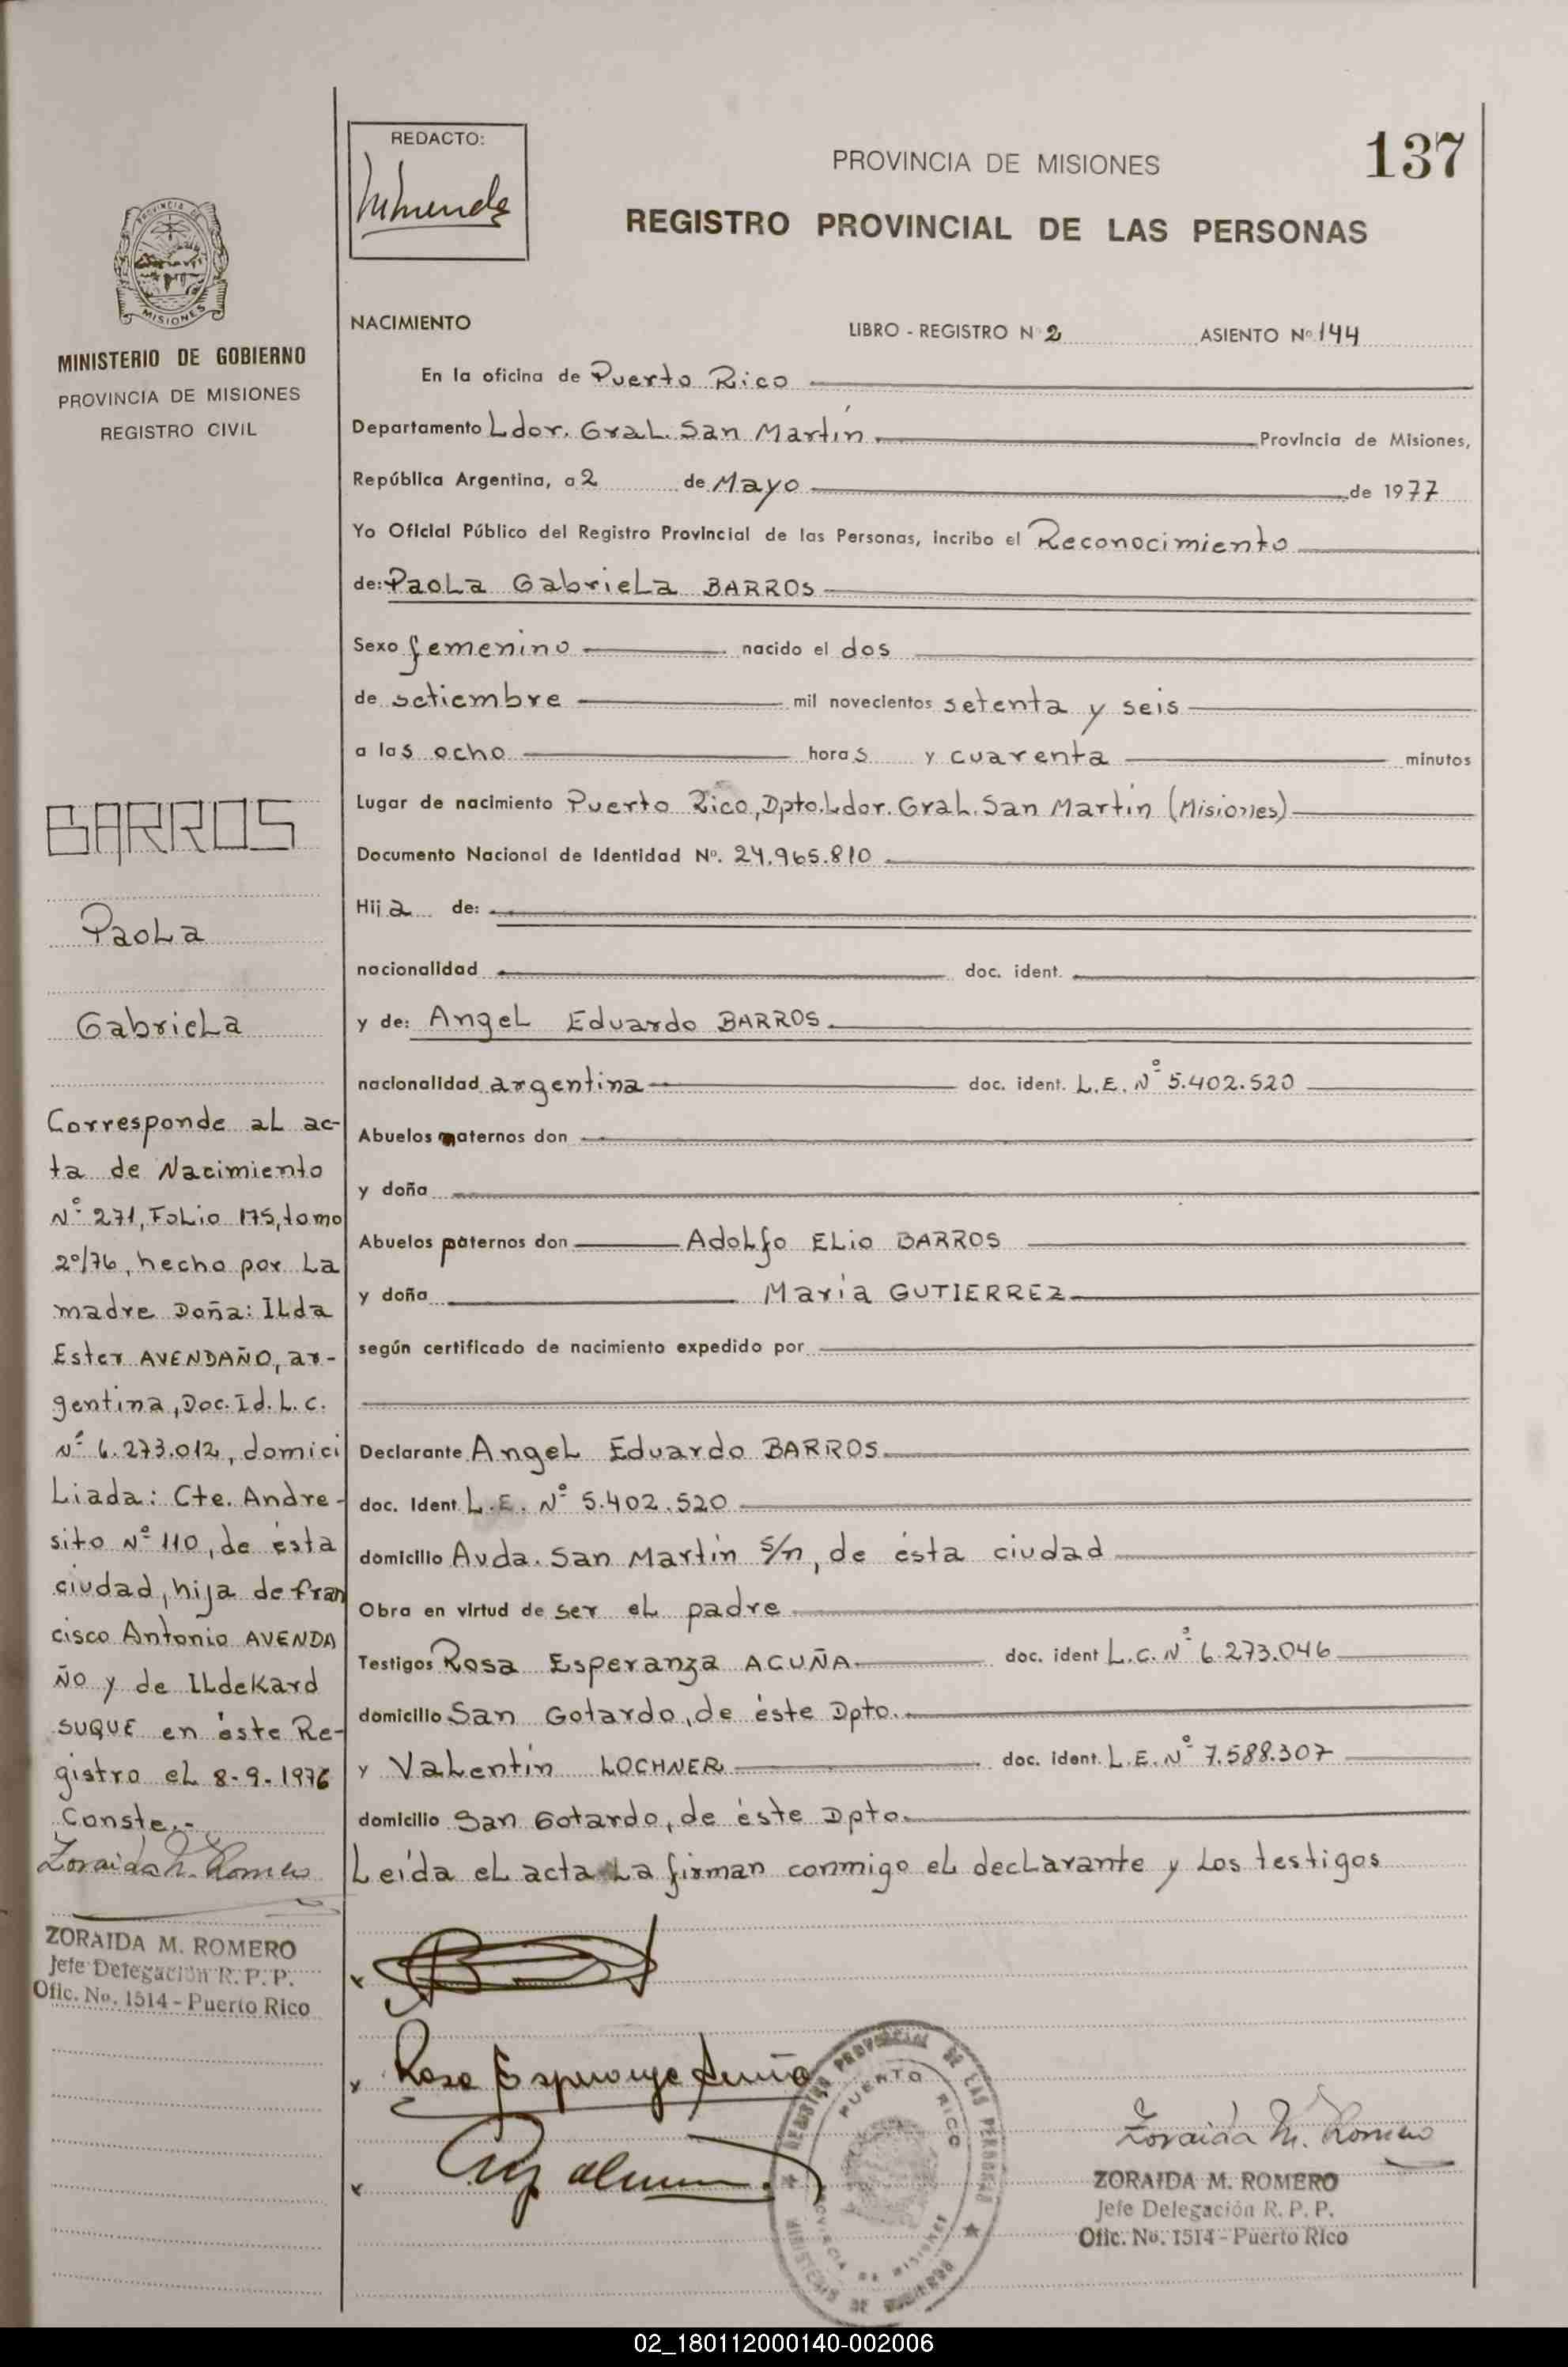 REDACTO:
PROVINCIA DE MISIONES
137
REGISTRO PROVINCIAL DE LAS PERSONAS
MISIONES
MINISTERIO DE GOBIERNO
PROVINCIA DE MISIONES
REGISTRO CIVIL
BARROS
Paola
Gabriela
Corresponde al ac-
ta de Nacimiento
Nº 271, Folio 175, tomo
2º/76, hecho por la
madre Doña: Ilda
Ester AVENDAÑO, ar-
gentina, Doc. Id. L. C.
Nº 6.273.012, domici
liada: Cte. Andre-
sito Nº 110, de ésta
ciudad, hija de fran
cisco Antonio AVENDA
ÑO y de Ildekard
SUQUE en éste Re-
gistro el 8-9-1976
Conste.-
Zoraida M. Romero
ZORAIDA M. ROMERO
Jefe Delegación R. P. P.
Ofic. No. 1514 - Puerto Rico
NACIMIENTO LIBRO - REGISTRO Nº 2 ASIENTO Nº 144
En la oficina de Puerto Rico
Departamento Ldor. Gral. San Martín Provincia de Misiones,
República Argentina, a 2 de Mayo de 1977
Yo Oficial Público del Registro Provincial de las Personas, incribo el Reconocimiento
de: Paola Gabriela BARROS
Sexo femenino nacido el dos
de setiembre mil novecientos setenta y seis
a las ocho horas y cuarenta minutos
Lugar de nacimiento Puerto Rico, Dpto. Ldor. Gral. San Martín (Misiones)
Documento Nacional de Identidad Nº. 24.965.810
Hija de:
nacionalidad doc. ident.
y de: Angel Eduardo BARROS
nacionalidad argentina doc. ident. L.E. Nº 5.402.520
Abuelos maternos don
y doña
Abuelos paternos don Adolfo Elio BARROS
y doña María GUTIERREZ
según certificado de nacimiento expedido por
Declarante Angel Eduardo BARROS
doc. Ident. L.E. Nº 5.402.520
domicilio Avda. San Martín s/n, de ésta ciudad
Obra en virtud de ser el padre
Testigos Rosa Esperanza ACUÑA doc. ident L.C. Nº 6.273.046
domicilio San Gotardo, de éste Dpto.
y Valentín LOCHNER doc. ident. L.E. Nº 7.588.307
domicilio San Gotardo, de éste Dpto.
Leída el acta la firman conmigo el declarante y los testigos
x
x Rosa Esperanza Acuña
x
REGISTRO PROVINCIAL DE LAS PERSONAS
PUERTO RICO
PROVINCIA DE MISIONES
MINISTERIO DE GOBIERNO
Zoraida M. Romero
ZORAIDA M. ROMERO
Jefe Delegación R. P. P.
Ofic. No. 1514 - Puerto Rico
02_180112000140-002006